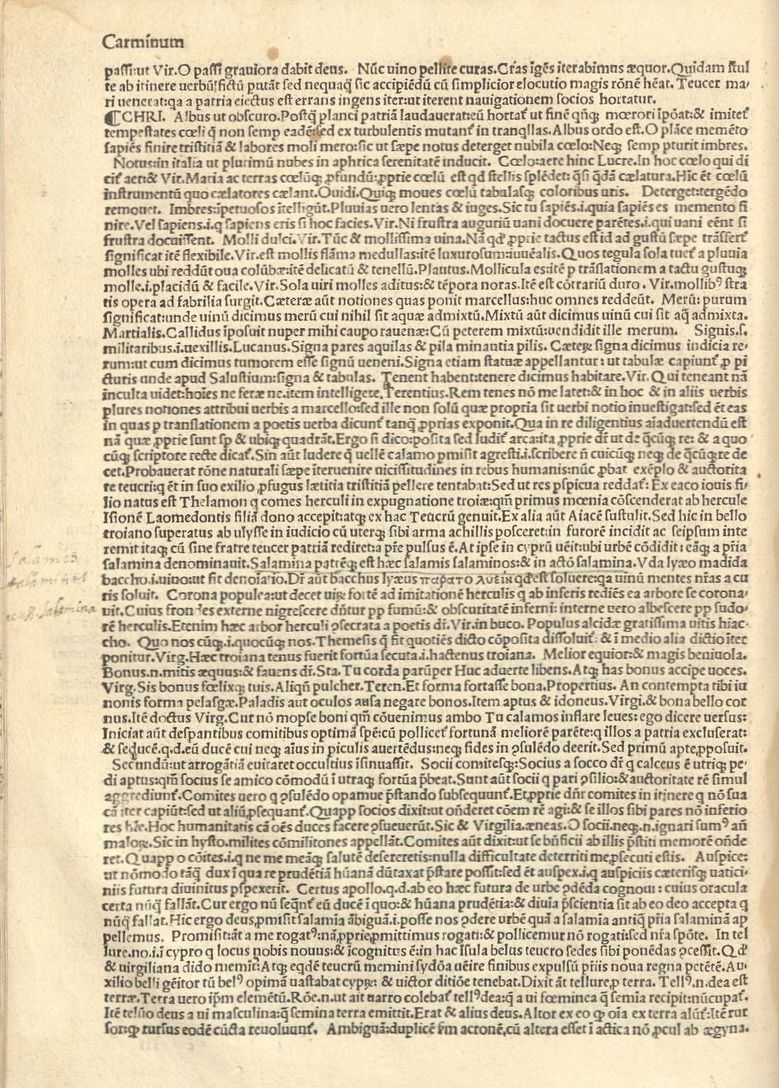 Carminum
passi:ut Vir. O passi graviora dabit deus. Nūc uino pellite curas. Cras īgēs iterabimus æquor. Quidam stul
te ab itinere uerbū fictū putāt sed nequaq̄ sic accipiēdū cū simplicior elocutio magis rōnē hēat. Teucer ma
ri uenerat: qa a patria eiectus est errans ingens iter: ut iterent nauigationem socios hortatur.
CHRI. Albus ut obscuro. Postq̄ planci patriā laudauerat: eū hortat ut finē qn̄q moerori īpōat: & imitet
tempestates cœli q̄ non semp eadē: sed ex turbulentis mutant in tranqllas. Albus ordo est. O plāce memēto
sapiēs finire tristitiā & labores moli mero: sic ut sæpe notus deterget nubila cœlo: Neq semp pturit imbres.
Notus: in italia ut plurimū nubes in aphrica serenitatē inducit. Cœlo: aere hinc Lucre. In hoc cœlo qui di
cit aer: & Vir. Maria ac terras cœlūq pfundū: pprie cœlū est qd stellis splēdet: q̄si q̄dā cælatura. Hīc ēt cœlū
instrumentū quo cælatores cælant. Ouidi. Quiq moues cœlū tabulasq coloribus uris. Deterget: tergēdo
remouet. Imbres: īpetuosos ītelligūt. Pluuias uero lentas & iuges. Sic tu sapiēs. i. quia sapiēs es memento fi
nire. Vel sapiens. i. q sapiens eris si hoc facies. Vir. Ni frustra auguriū uani docuere parētes. i. qui uani eēnt si
frustra docuissent. Molli dulci. Vir. Tūc & mollissima uina. Nā qd pprie tactus est id ad gustū sæpe trāsfert
significat itē flexibile. Vir. est mollis flāma medullas: itē luxurosum: iuuēalis. Quos tegula sola tuet a pluuia
molles ubi reddūt oua colūbæ: itē delicatū & tenellū. Plautus. Mollicula es: itē p trāslationem a tactu gustuq
molle. i. placidū & facile. Vir. Sola uiri molles aditus: & tēpora noras. Itē est cōtrariū duro. Vir. mollib9 stra
tis opera ad fabrilia surgit. Cæteræ aūt notiones quas ponit marcellus: huc omnes reddeūt. Merū: purum
significat: unde uinū dicimus merū cui nihil sit aquæ admixtū. Mixtū aūt dicimus uinū cui sit aq̄ admixta.
Martialis. Callidus īposuit nuper mihi caupo rauenæ: Cū peterem mixtū: uendidit ille merum. Signis. s.
militaribus. i. uexillis. Lucanus. Signa pares aquilas & pila minantia pilis. Cæterꝝ signa dicimus indicia re-
rum: ut cum dicimus tumorem esse signū ueneni. Signa etiam statuæ appellantur: ut tabulæ capiunt p pi
cturis unde apud Salustium: signa & tabulas. Tenent habent: tenere dicimus habitare. Vir. Qui teneant nā
inculta uidet: hoīes ne feræ ne. item intelligere. Terentius. Rem tenes nō me latet: & in hoc & in aliis uerbis
plures notiones attribui uerbis a marcello: sed ille non solū quæ propria sit uerbi notio inuestigat: sed ēt eas
in quas p translationem a poetis uerba dicunt tanq̄ pprias exponit. Qua in re diligentius aīaduertendū est
nā quæ pprie sunt sp & ubiq quadrāt. Ergo si dico: posita sed ludit arca: ita pprie dr ut de q̄cūq re: & a quo
cūq scriptore recte dicat. Sin aūt ludere q̄ uellē calamo pmisit agresti. i. scribere n̄ cuicūq neq de q̄cūq re de
cet. Probauerat rōne naturali sæpe īteruenire uicissitudines in rebus humanis: nūc pbat exēplo & auctorita
te teucri: q ēt in suo exilio pfugus lætitia tristitiā pellere tentabat: Sed ut res pspicua reddat: Ex eaco iouis fi-
lio natus est Thelamon q comes herculi in expugnatione troiæ: qm̄ primus mœnia cōscenderat ab hercule
Isionē Laomedontis filiā dono accepit: atq ex hac Teucrū genuit. Ex alia aūt Aiacē sustulit. Sed hic in bello
troiano superatus ab ulysse in iudicio cū uterq sibi arma achillis posceret: in furorē incidit ac seipsum inte
remit itaq cū sine fratre teucer patriā rediret: a pr̄e pulsus ē. At ipse in cyprū uēit: ubi urbē cōdidit: eāq a pria
salamina denominauit. Salamina patrēq est hæc salamis salaminos: & in actō salamina. Vda lyæo madida
baccho. i. uino: ut sit denoīatio. Dr̄ aūt bacchus lyæus παρα το λυειν qd est soluere: qa uinū mentes nr̄as a cu
ris soluit. Corona populea: ut decet uirꝝ fortē ad imitationē herculis q ab inferis rediēs ea arbore se corona-
uit. Cuius frondes externe nigrescere dn̄tur pp fumū: & obscuritatē inferni: interne uero albescere pp sudo-
rē herculis. Etenim hæc arbor herculi ꝯsecrata a poetis dr̄. Vir. in buco. Populus alcidæ gratissima uitis hiac-
cho. Quo nos cūq. i. quocūq nos. Themesis q̄ fit quotiēs dictō cōposita dissoluit: & ī medio alia dictio īter
ponitur. Virg. Hæc troiana tenus fuerit fortūa secuta. i. hactenus troiana. Melior equior: & magis beniuola.
Bonus. n. mitis æquus: & fauens dr̄. Sta. Tu corda parūper Huc aduerte libens. Atq has bonus accipe uoces.
Virg. Sis bonus fœlixq tuis. Aliqn̄ pulcher. Teren. Et forma fortasse bona. Propertius. An contempta tibi iu
nonis forma pelasgæ. Paladis aut oculos ausa negare bonos. Item aptus & idoneus. Virgi. & bona bello cor
nus. Itē doctus Virg. Cur nō mopse boni qm̄ cōuenimus ambo Tu calamos inflare leues: ego dicere uersus:
Iniciat aūt despantibus comitibus optimā spē: cū pollicet fortunā meliorē parēte: q illos a patria excluserat:
& seq̄ducē. q. d. eū ducē cui neq aīus in piculis auertēdus: neq fides in ꝯsulēdo deerit. Sed primū apte pposuit.
Secūndū: ut arrogātiā euitaret occultius īsinuasset. Socii comitesq: Socius a socco dr̄ q calceus ē utriq pe-
di aptus: qm̄ socius se amico cōmodū ī utraq fortūa p̄beat. Sunt aūt socii q pari ꝯsilio: & auctoritate rē simul
aggrediunt. Comites uero q ꝯsulēdo opamue p̄stando subsequunt. Et pprie dn̄r comites in itinere q nō sua
cā iter capiūt: sed ut aliū psequant. Quapp socios dixit: ut on̄deret cōem rē agi: & se illos sibi pares nō inferio
res hr̄e. Hoc humanitatis cā oēs duces facere ꝯsueuerūt. Sic & Virgilia æneas. O socii. neq. n. ignari sum9 an̄
malorꝝ. Sic in hysto. milites cōmilitones appellāt. Comites aūt dixit: ut se bn̄ficii ab illis p̄stiti memorē onde
ret. Quapp o cōites. i. q ne me meāq salutē desereretis: nulla difficultate deterriti me psecuti estis. Auspice:
ut nōmodo tāq̄ dux ī qua re prudētiā hūanā dūtaxat p̄stare possit: sed ēt auspex. i. q auspiciis cæterisq uatici-
niis futura diuinitus pspexerit. Certus apollo. q. d. ab eo hæc futura de urbe ꝯdēda cognoui: cuius oracula
certa nūq̄ fallāt. Cur ergo nū seqn̄t eū ducē ī quo: & hūana prudētia: & diuīa p̄scientia sit ab eo deo accepta q
nūq̄ fallat. Hic ergo deus pmisit salamīa ābiguā. i. posse nos ꝯdere urbē quā a salamīa antiq̄ priia salaminā ap
pellemus. Promisit: āt a me rogat9: nā pprie pmittimus rogati: & pollicemur nō rogati: sed nr̄a spōte. In tel
lure. no. i. ī cypro q locus nobis nouus: & īcognitus ē: in hac īsula belus teucro sedes sibi ponēdas ꝯcessit. Qd
& uirgiliana dido memīt: Atq eqdē teucrū memini sydōa uēire finibus expulsū priis noua regna petētē. Au-
xilio belli gēitor tū bel9 opimā uastabat cyprꝝ: & uictor ditiōe tenebat. Dixit āt tellure p terra. Tell9. n. dea est
terræ. Terra uero ipm̄ elemētū. Rōe. n. ut ait uarro colebat tell9 dea: q̄ a ui fœminea q̄ semīa recipit: nūcupat.
Itē tellūo deus a ui masculina: q̄ semina terra emittit. Erat & alius deus. Altor ex eo q oīa ex terra alūt: Itē rur
sor: q rursus eodē cūcta reuoluunt. Ambiguā: duplicē fm acronē, cū altera esset ī actica nō pcul ab ægyna.
Salamina